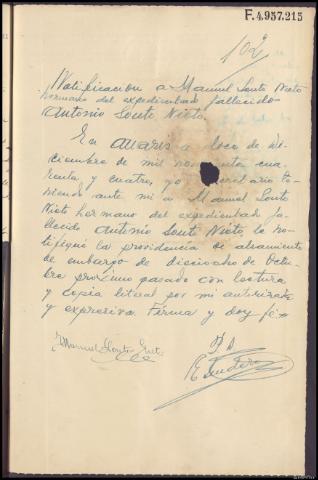 F.4.957.215
102
Notificacion a Manuel Souto Nieto
hermano del expedientado fallecido
Antonio Souto Nieto.
En Allariz a doce de Di-
ciembre de mil novecientos cua-
renta y cuatro, yo secretario te-
niendo ante mi a Manuel Souto
Nieto hermano del expedientado fa-
llecido Antonio Souto Nieto, le no-
tifiqué la providencia de alzamiento
de embargo de dieciocho de Octu-
bre próximo pasado con lectura
y copia literal por mi autorizada
y expresiva. Firma y doy fé=
Manuel Souto Nieto